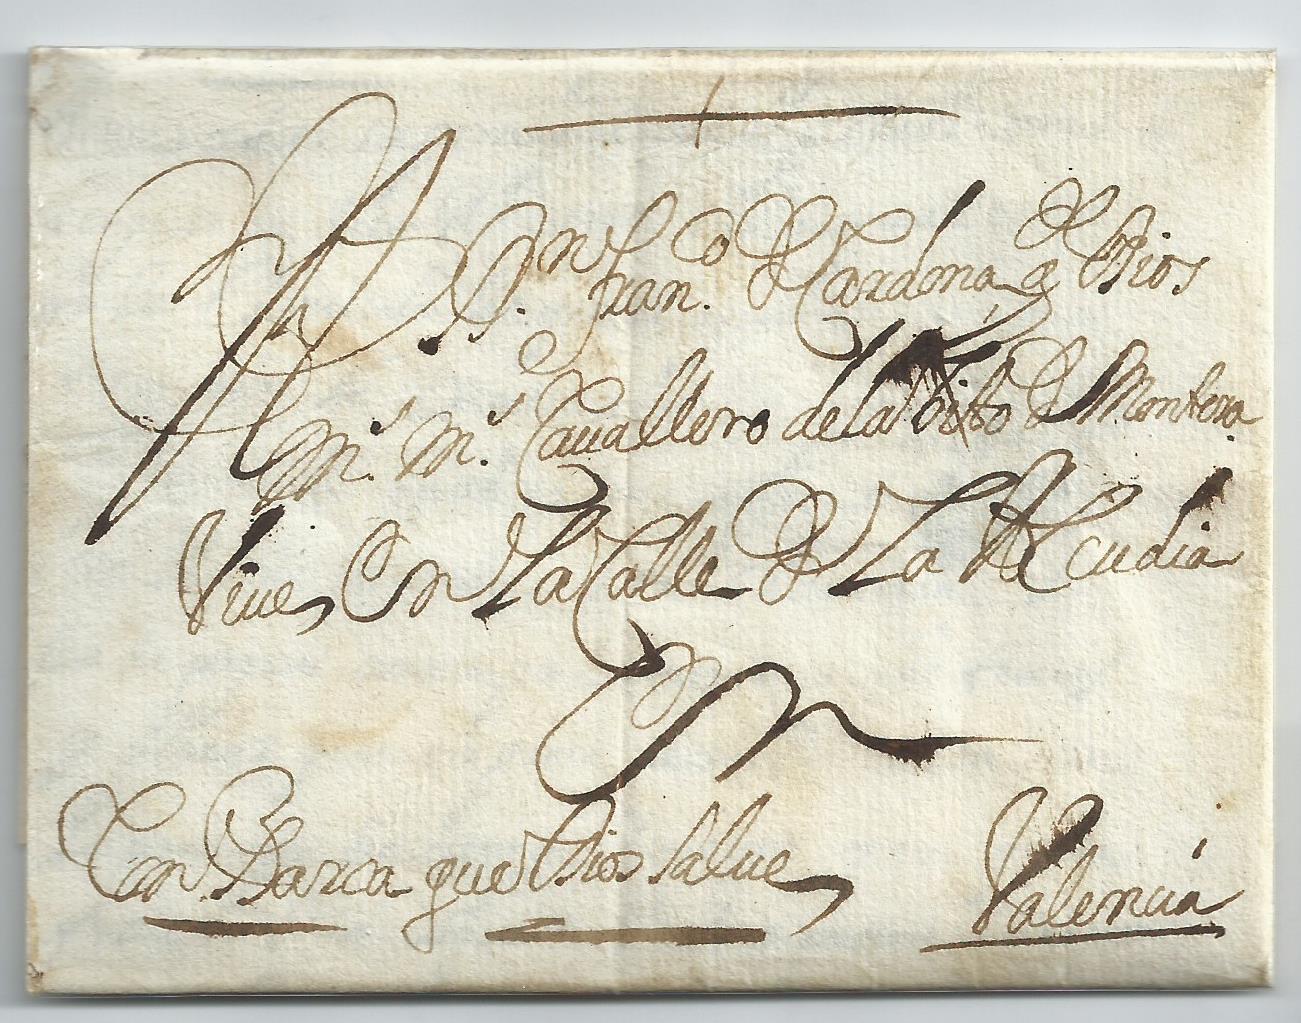 A D.n Fran.co de Cardona q Dios
g.e m.s m.s Cavallero de la Orñ de Monttesa
Vive, En La Calle de La Alcudia
En
Con Barca que Dios salve,
Valencia